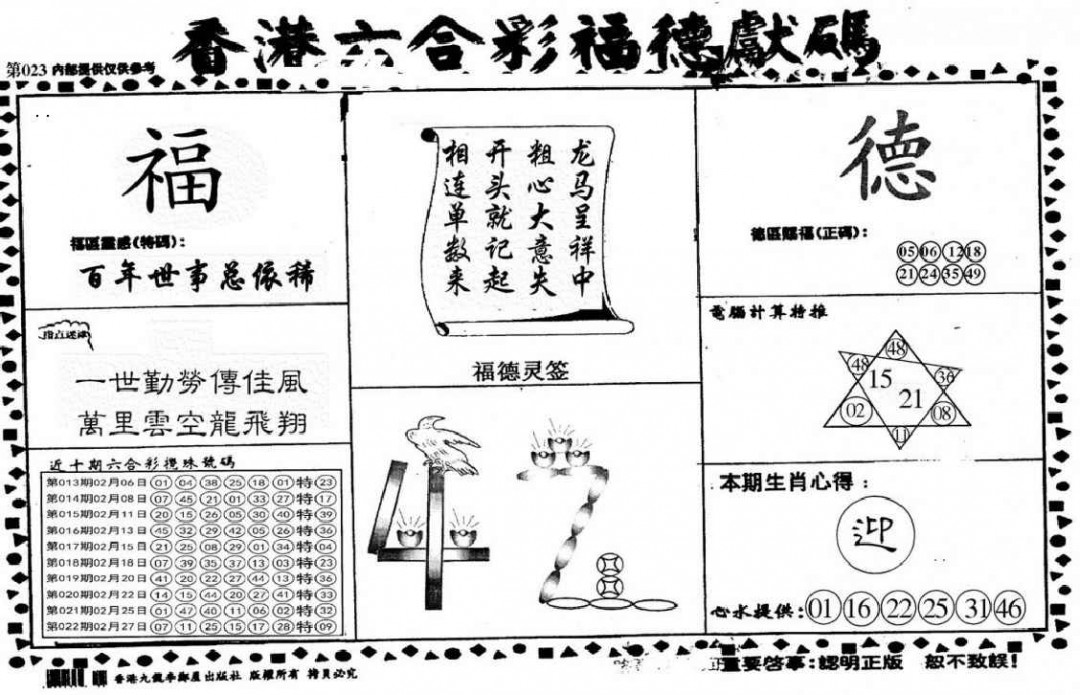 香港六合彩福德獻碼
第023 内部提供仅供参考
福
福區靈感(特碼):
百年世事总依稀
指点迷津
一世勤勞傳佳風
萬里雲空龍飛翔
近十期六合彩攪珠號碼
第013期02月06日 01 04 38 25 18 01 特 23
第014期02月08日 07 45 21 01 33 27 特 17
第015期02月11日 20 15 26 05 30 40 特 39
第016期02月13日 45 32 29 42 05 26 特 36
第017期02月15日 21 25 08 29 01 34 特 04
第018期02月18日 07 39 35 37 13 03 特 23
第019期02月20日 41 20 22 27 44 13 特 36
第020期02月22日 14 15 44 20 27 41 特 33
第021期02月25日 01 47 40 11 06 02 特 32
第022期02月27日 07 11 25 15 17 28 特 09
龙马呈祥中
粗心大意失
开头就记起
相连单数来
福德灵签
德
德區賜福(正碼):
05 06 12 18
21 24 35 49
電腦計算特推
48
48 15 36
21
02 08
11
本期生肖心得:
迎
心水提供: 01 16 22 25 31 46
香港九龍李鄭屋出版社 版權所有 拷貝必究
重要啓事:認明正版 般不致誤!